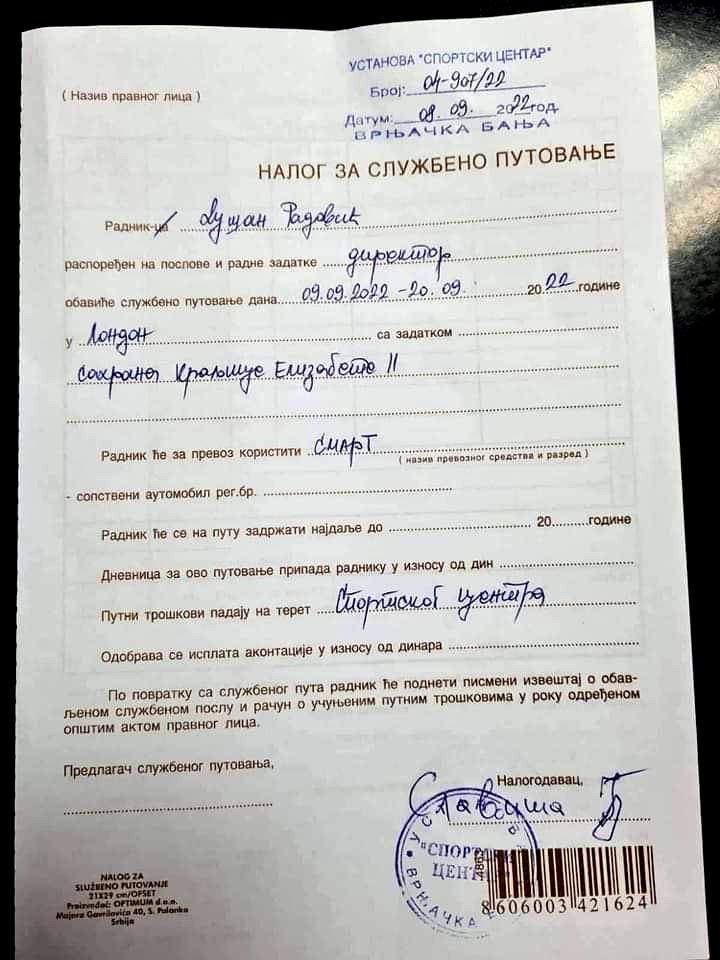 УСТАНОВА "СПОРТСКИ ЦЕНТАР"
( Назив правног лица )
Број: 04-907/22
Датум: 09. 09. 2022 год.
ВРЊАЧКА БАЊА
НАЛОГ ЗА СЛУЖБЕНО ПУТОВАЊЕ
Радник-ца Душан Радовић
распоређен на послове и радне задатке директор
обавиће службено путовање дана 09.09.2022 - 20. 09. 2022 године
у Лондон са задатком
сахрана Краљице Елизабете II
Радник ће за превоз користити СМАРТ
( назив превозног средства и разред )
- сопствени аутомобил рег.бр.
Радник ће се на путу задржати најдаље до 20 године
Дневница за ово путовање припада раднику у износу од дин
Путни трошкови падају на терет Спортског центра
Одобрава се исплата аконтације у износу од динара
По повратку са службеног пута радник ће поднети писмени извештај о обав-
љеном службеном послу и рачун о учуњеним путним трошковима у року одређеном
општим актом правног лица.
Предлагач службеног путовања,
Налогодавац,
Славиша
NALOG ZA
SLUŽBENO PUTOVANJE
21X29 cm/OFSET
Proizvođač: OPTIMUM d.o.o.
Majora Gavrilovića 40, S. Palanka
Srbija
8 606003 421624